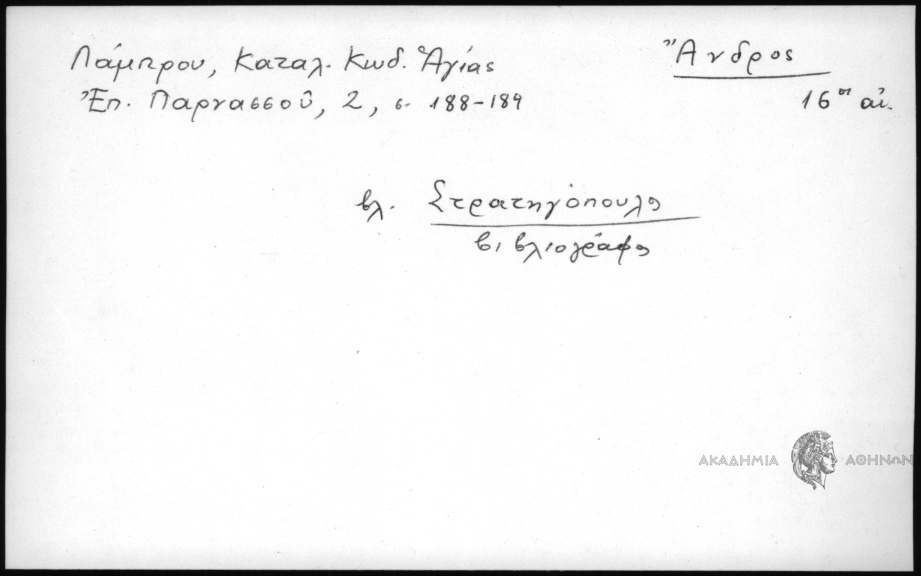 Λάμπρου, Καταλ. Κωδ. Ἁγίας
Ἐπ. Παρνασσοῦ, 2, σ. 188-189
Ἄνδρος
16ος αἰ.
βλ. Στρατηγόπουλος
βιβλιογράφος
ΑΚΑΔΗΜΙΑ ΑΘΗΝΩΝ